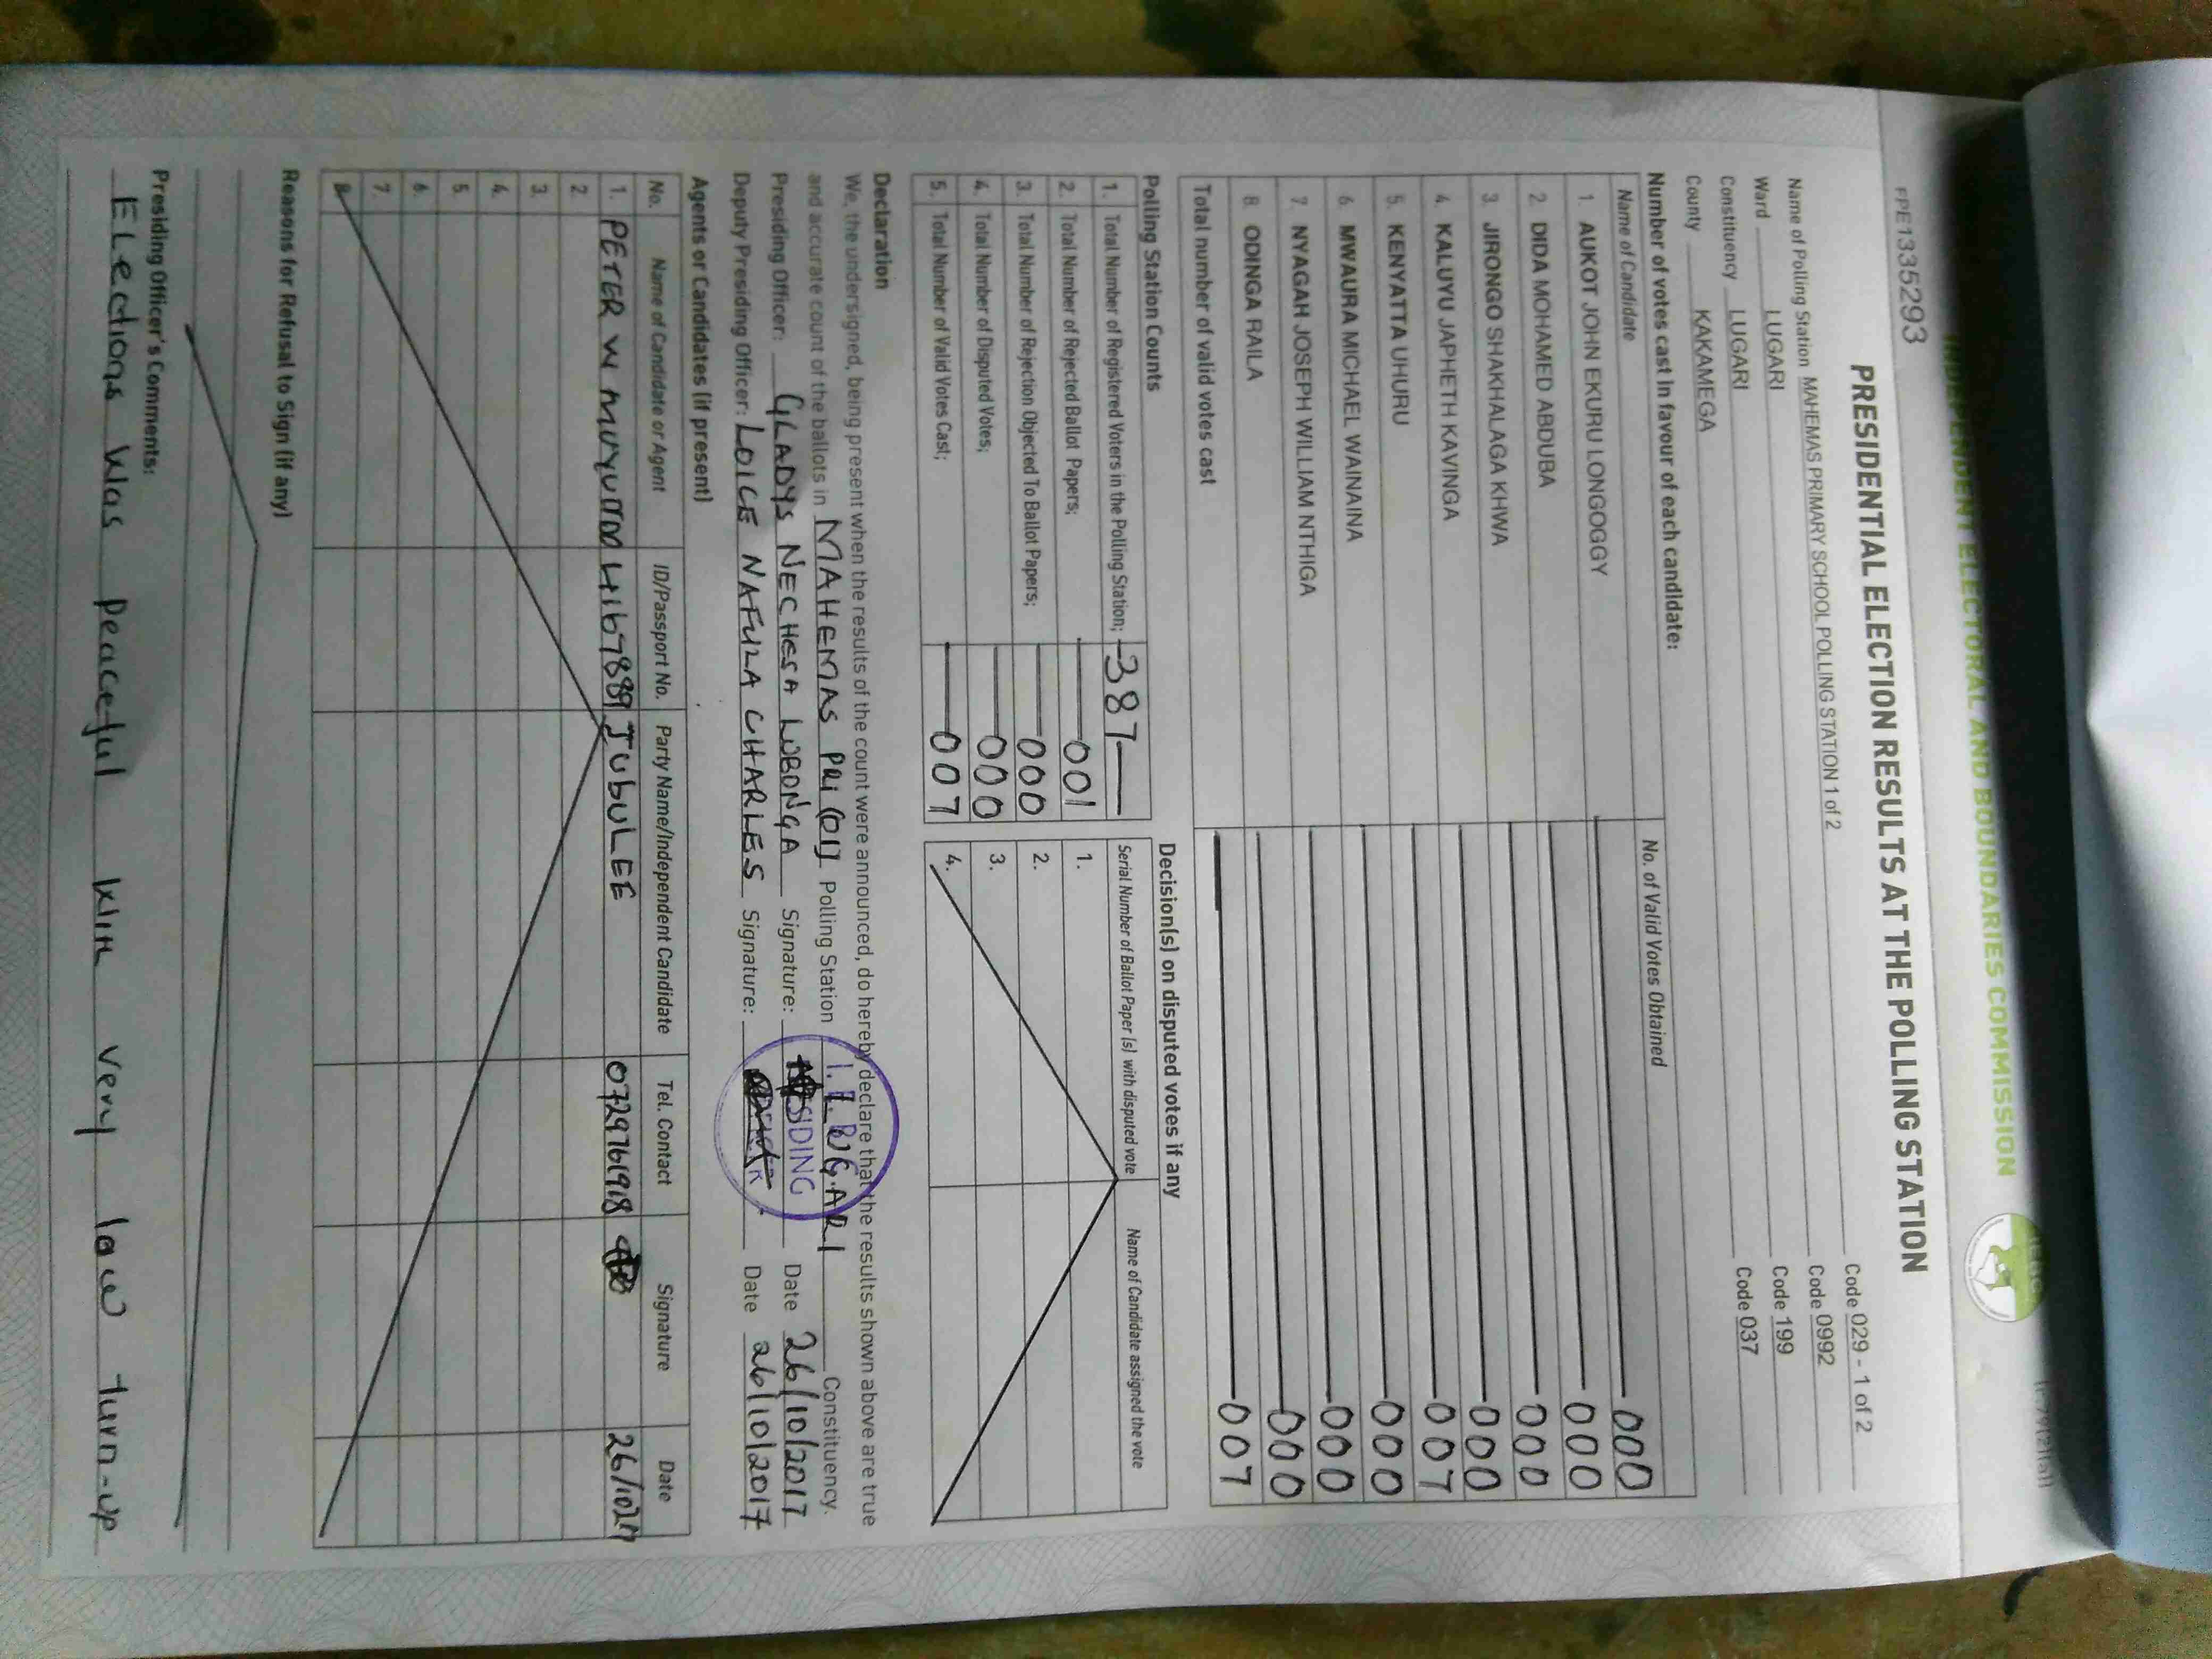 INDEPENDENT ELECTORAL AND BOUNDARIES COMMISSION
FPE1335293
PRESIDENTIAL ELECTION RESULTS AT THE POLLING STATION
Name of Polling Station MAHEMAS PRIMARY SCHOOL POLLING STATION 1 of 2 Code 029 - 1 of 2
Ward LUGARI Code 0992
Constituency LUGARI Code 199
County KAKAMEGA Code 037
Number of votes cast in favour of each candidate:
Name of Candidate No. of Valid Votes Obtained
1. AUKOT JOHN EKURU LONGOGGY 000
2. DIDA MOHAMED ABDUBA 000
3. JIRONGO SHAKHALAGA KHWA 000
4. KALUYU JAPHETH KAVINGA 000
5. KENYATTA UHURU 007
6. MWAURA MICHAEL WAINAINA 000
7. NYAGAH JOSEPH WILLIAM NTHIGA 000
8. ODINGA RAILA 000
Total number of valid votes cast 007
Polling Station Counts
1. Total Number of Registered Voters in the Polling Station; 387
2. Total Number of Rejected Ballot Papers; 001
3. Total Number of Rejection Objected To Ballot Papers; 000
4. Total Number of Disputed Votes; 000
5. Total Number of Valid Votes Cast; 007
Decision(s) on disputed votes if any
Serial Number of Ballot Paper (s) with disputed vote Name of Candidate assigned the vote
1.
2.
3.
4.
Declaration
We, the undersigned, being present when the results of the count were announced, do hereby declare that the results shown above are true
and accurate count of the ballots in MAHEMAS PRI (01) Polling Station LUGARI Constituency.
Presiding Officer: GLADYS NECHESA LUBONGA Signature: Date 26/10/2017
Deputy Presiding Officer: LOICE NAFULA CHARLES Signature: Date 26/10/2017
PRESIDING
Agents or Candidates (if present)
No. Name of Candidate or Agent ID/Passport No. Party Name/Independent Candidate Tel. Contact Signature Date
1. PETER W JUBULEE 0729761918
2.
3.
4.
5.
6.
7.
8.
Reasons for Refusal to Sign (if any)
Presiding Officer's Comments:
ELections was peaceful with very low turn-up